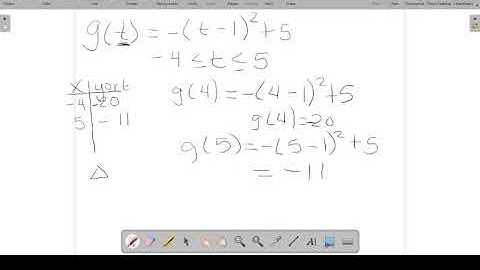 g(t) = -(t-1)²+5
-4 ≤ t ≤ 5
x | y or t
-4 | -20
5 | -11
g(4) = -(4-1)²+5
g(4) = -20
g(5) = -(5-1)²+5
= -11
△